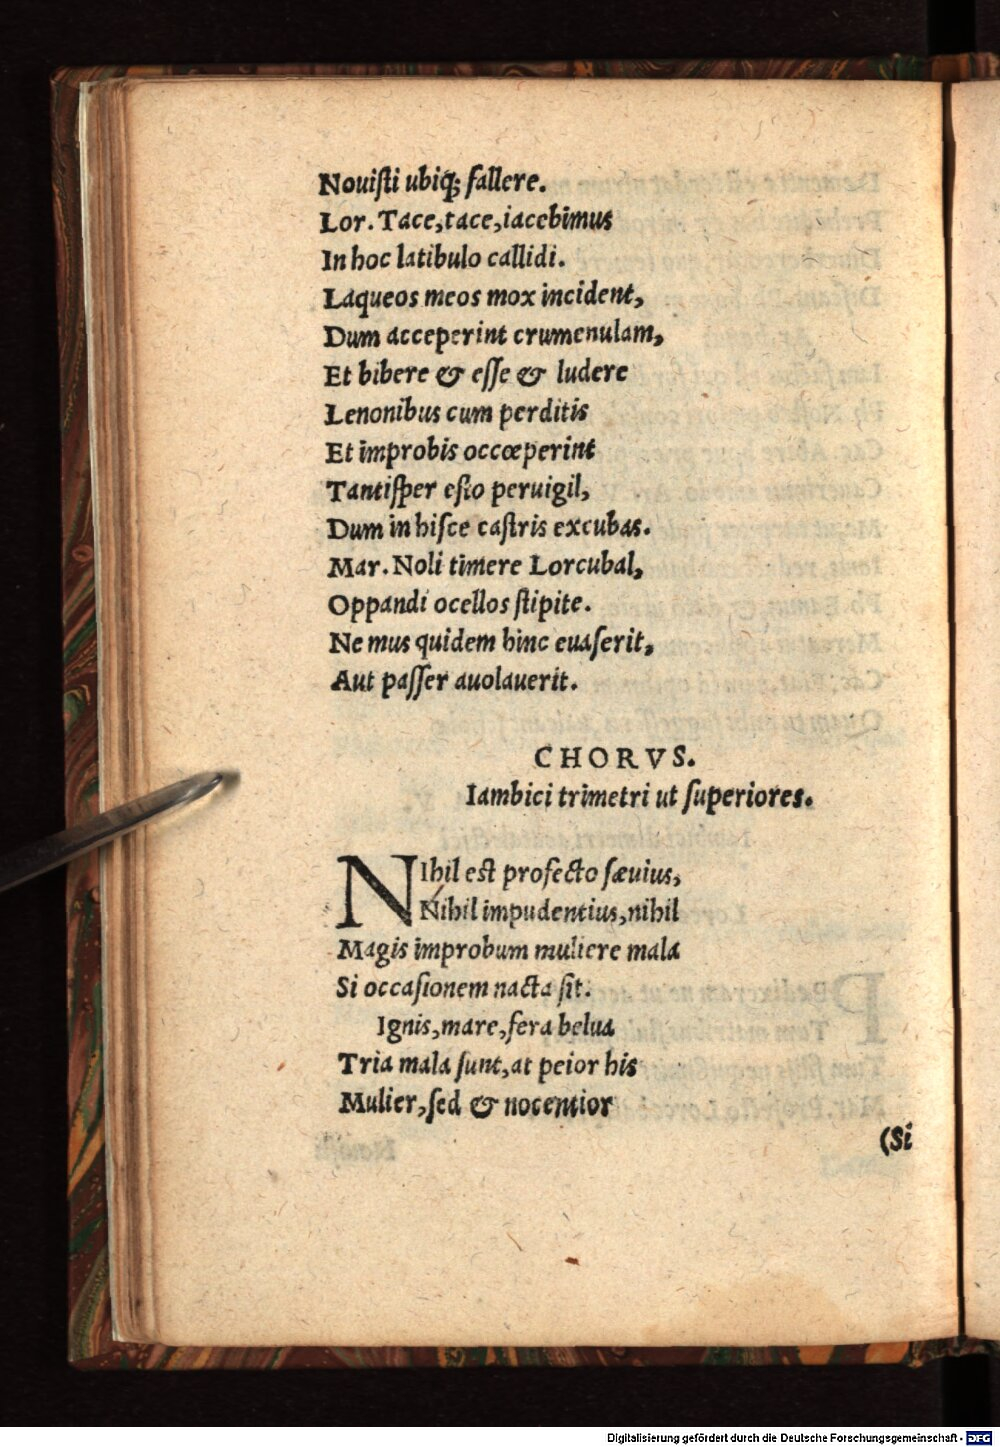 Nouiſti ubiq; fallere.
Lor. Tace, tace, iacebimus
In hoc latibulo callidi.
Laqueos meos mox incident,
Dum acceperint crumenulam,
Et bibere & eſſe & ludere
Lenonibus cum perditis
Et improbis occœperint
Tantiſper eſto peruigil,
Dum in hiſce caſtris excubas.
Mar. Noli timere Lorcubal,
Oppandi ocellos ſtipite.
Ne mus quidem hinc euaſerit,
Aut paſſer auolauerit.
CHORVS.
Iambici trimetri ut ſuperiores.
NIhil est profecto ſæuius,
Nihil impudentius, nihil
Magis improbum muliere mala
Si occaſionem nacta ſit.
Ignis, mare, fera belua
Tria mala ſunt, at peior his
Mulier, ſed & nocentior
(Si
Digitalisierung gefördert durch die Deutsche Forschungsgemeinschaft - DFG